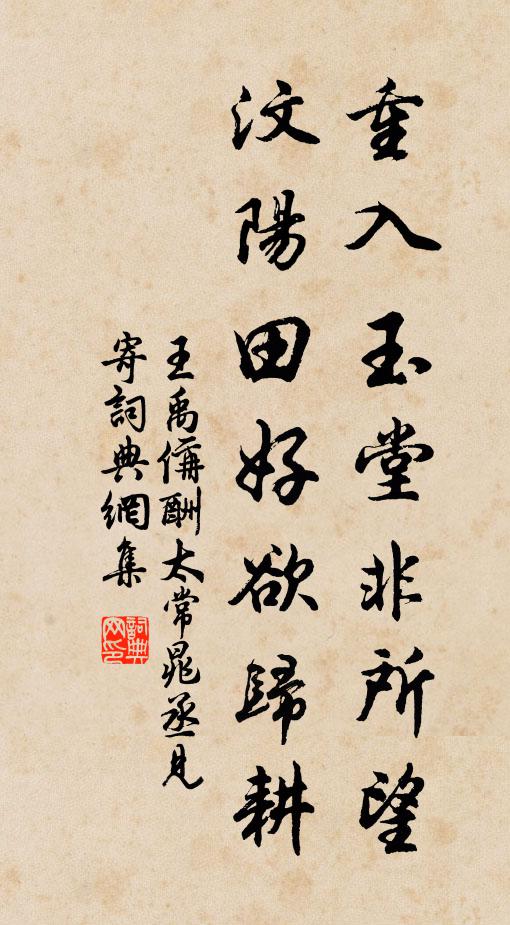 重入玉堂非所望
汶陽田好欲歸耕
王禹偁酬太常晁丞見
寄詞典網集
詞典
网印